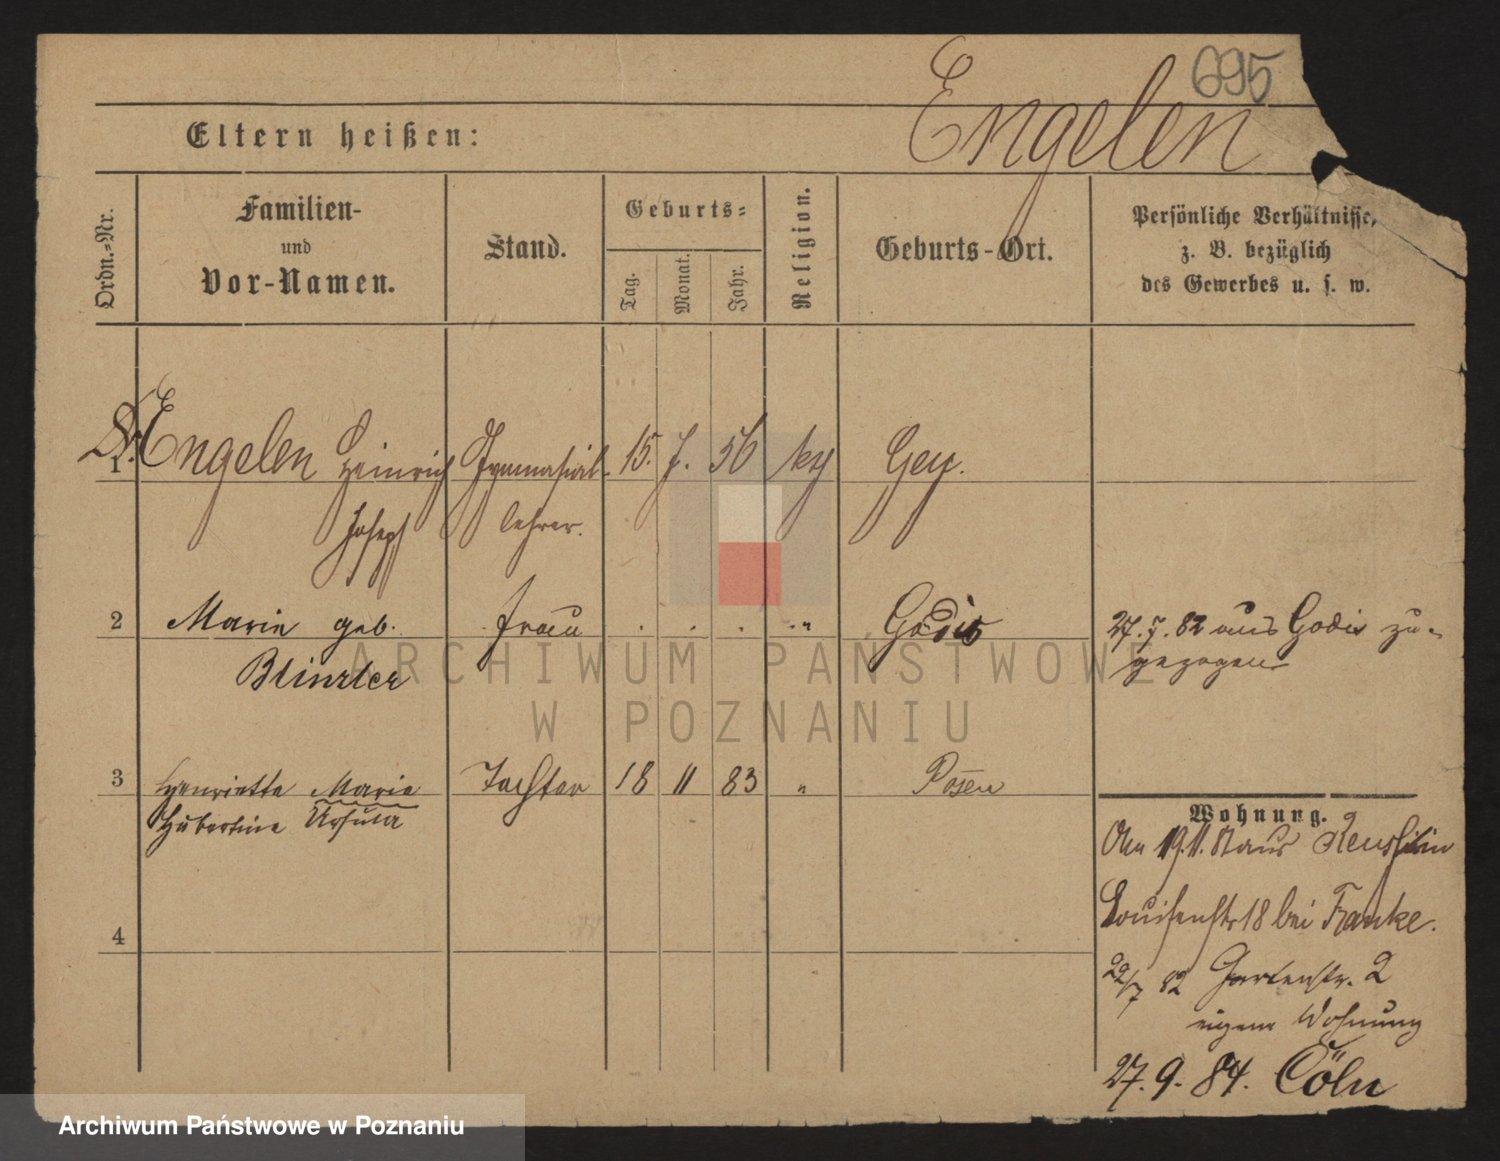 695
Engelen
Eltern heißen:
Ordn.-Nr.
Familien-
und
Vor-Namen.
Stand.
Geburts-
Tag.
Monat.
Jahr.
Religion.
Geburts-Ort.
Persönliche Verhältnisse,
z. B. bezüglich
des Gewerbes u. s. w.
1 Dr. Engelen Heinrich Gymnasial- 15. 7. 56 Gey.
Joseph lehrer.
2 Marie geb. Frau . . . " Godis 27. 7. 82 aus Godis zu-
Blinzler gezogen
3 Henrietta Marie Tochter 18 11 83 " Posen
Hubertine Ursula
Wohnung.
Am 19. 1. aus
Louisenstr 18 bei Franke.
22/7 82 Gartenstr. 2
eigene Wohnung
27. 9. 84. Cöln
4
ARCHIWUM PAŃSTWOWE
W POZNANIU
Archiwum Państwowe w Poznaniu